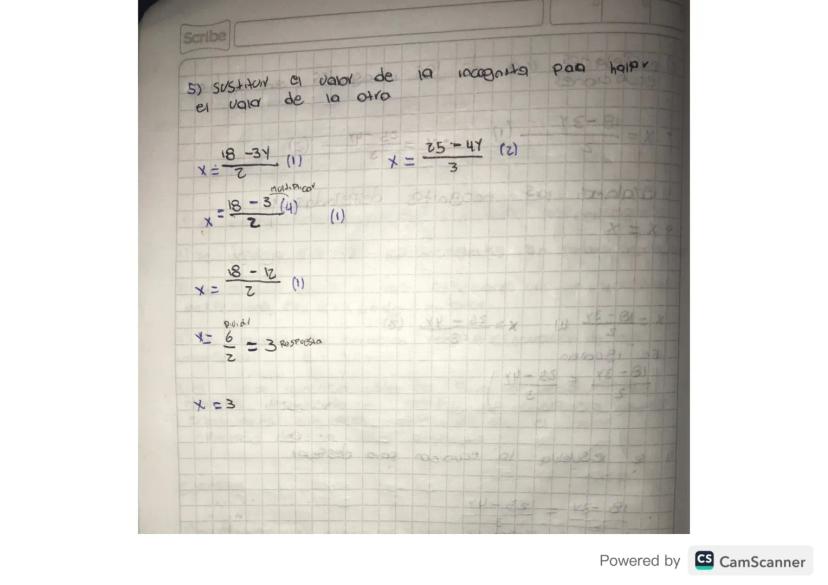 Scribe
5) sustituir el valor de la incognita para halpr
el valor de la otra
x = 18 - 3y / 2 (1)
x = 25 - 4y / 3 (2)
multiplicar
x = 18 - 3 (4) / 2 (1)
x = 18 - 12 / 2 (1)
x = 6 / 2 = 3 Respuesta
x = 3
Powered by CS CamScanner